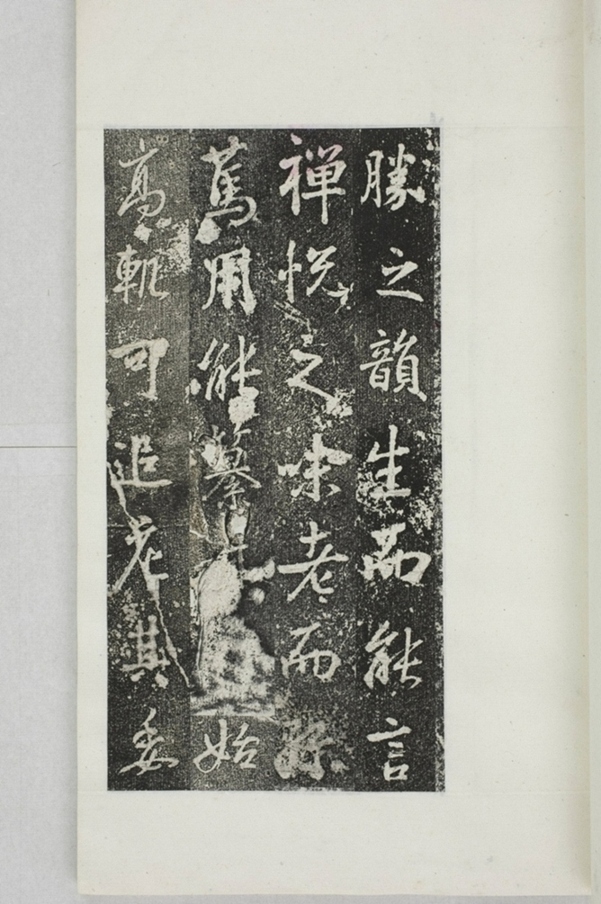 勝之韻生而能言
禪悅之味老而
篤用能纂始
高軌可追其委